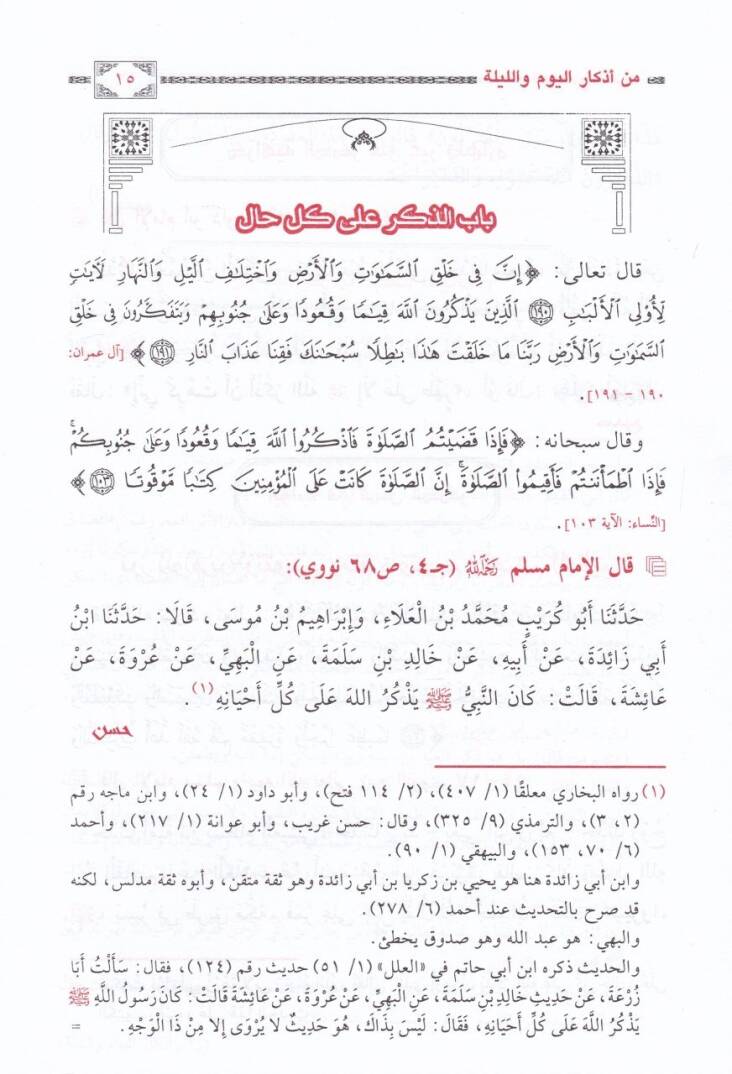 من أذكار اليوم والليلة ١٥
باب الذكر على كل حال
قال تعالى: ﴿إِنَّ فِي خَلْقِ السَّمَٰوَٰتِ وَالْأَرْضِ وَاخْتِلَٰفِ الَّيْلِ وَالنَّهَارِ لَآيَٰتٍ
لِّأُوْلِي الْأَلْبَٰبِ ۝١٩٠ الَّذِينَ يَذْكُرُونَ اللَّهَ قِيَٰمًا وَقُعُودًا وَعَلَىٰ جُنُوبِهِمْ وَيَتَفَكَّرُونَ فِي خَلْقِ
السَّمَٰوَٰتِ وَالْأَرْضِ رَبَّنَا مَا خَلَقْتَ هَٰذَا بَٰطِلًا سُبْحَٰنَكَ فَقِنَا عَذَابَ النَّارِ ۝١٩١﴾ [آل عمران:
١٩٠ - ١٩١].
وقال سبحانه: ﴿فَإِذَا قَضَيْتُمُ الصَّلَوٰةَ فَاذْكُرُوا اللَّهَ قِيَٰمًا وَقُعُودًا وَعَلَىٰ جُنُوبِكُمْ ۚ
فَإِذَا اطْمَأْنَنتُمْ فَأَقِيمُوا الصَّلَوٰةَ ۚ إِنَّ الصَّلَوٰةَ كَانَتْ عَلَى الْمُؤْمِنِينَ كِتَٰبًا مَّوْقُوتًا ۝١٠٣﴾
[النساء: الآية ١٠٣].
قال الإمام مسلم رحمه الله (جـ٤، ص٦٨ نووي):
حَدَّثَنَا أَبُو كُرَيْبٍ مُحَمَّدُ بْنُ الْعَلَاءِ، وَإِبْرَاهِيمُ بْنُ مُوسَى، قَالَا: حَدَّثَنَا ابْنُ
أَبِي زَائِدَةَ، عَنْ أَبِيهِ، عَنْ خَالِدِ بْنِ سَلَمَةَ، عَنِ الْبَهِيِّ، عَنْ عُرْوَةَ، عَنْ
عَائِشَةَ، قَالَتْ: كَانَ النَّبِيُّ ﷺ يَذْكُرُ اللهَ عَلَى كُلِّ أَحْيَانِهِ(١).
حسن
(١) رواه البخاري معلقًا (١/ ٤٠٧)، (٢/ ١١٤ فتح)، وأبو داود (١/ ٢٤)، وابن ماجه رقم
(٣،٢)، والترمذي (٩/ ٣٢٥)، وقال: حسن غريب، وأبو عوانة (١/ ٢١٧)، وأحمد
(٦/ ٧٠، ١٥٣)، والبيهقي (١/ ٩٠).
وابن أبي زائدة هنا هو يحيي بن زكريا بن أبي زائدة وهو ثقة متقن، وأبوه ثقة مدلس، لكنه
قد صرح بالتحديث عند أحمد (٦/ ٢٧٨).
والبهي: هو عبد الله وهو صدوق يخطئ.
والحديث ذكره ابن أبي حاتم في «العلل» (١/ ٥١) حديث رقم (١٢٤)، فقال: سَأَلْتُ أَبَا
زُرْعَةَ، عَنْ حَدِيثِ خَالِدِ بْنِ سَلَمَةَ، عَنِ الْبَهِيِّ، عَنْ عُرْوَةَ، عَنْ عَائِشَةَ قَالَتْ: كَانَ رَسُولُ اللَّهِ ﷺ
يَذْكُرُ اللَّهَ عَلَى كُلِّ أَحْيَانِهِ، فَقَالَ: لَيْسَ بِذَاكَ، هُوَ حَدِيثٌ لَا يُرْوَى إِلا مِنْ ذَا الْوَجْهِ. =